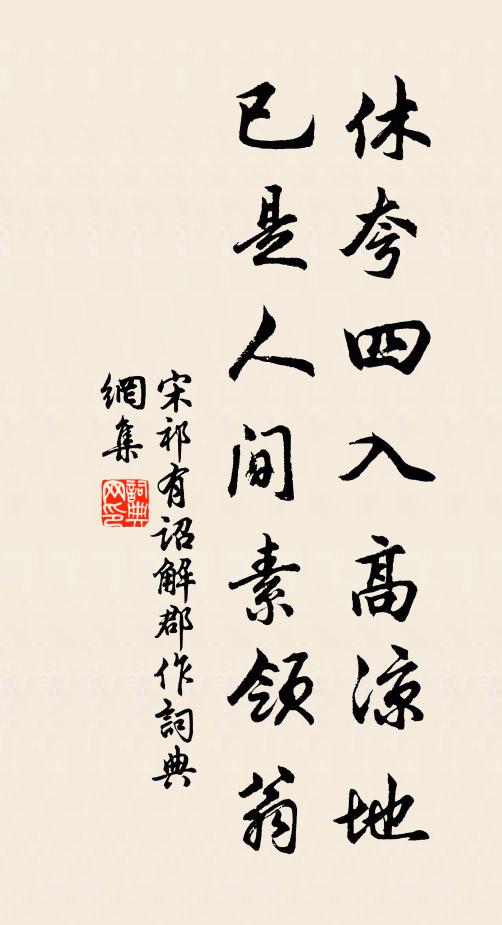 休夸四入高凉地
已是人间素领翁
宋祁有诏解郡作詞典
網集
詞典网印